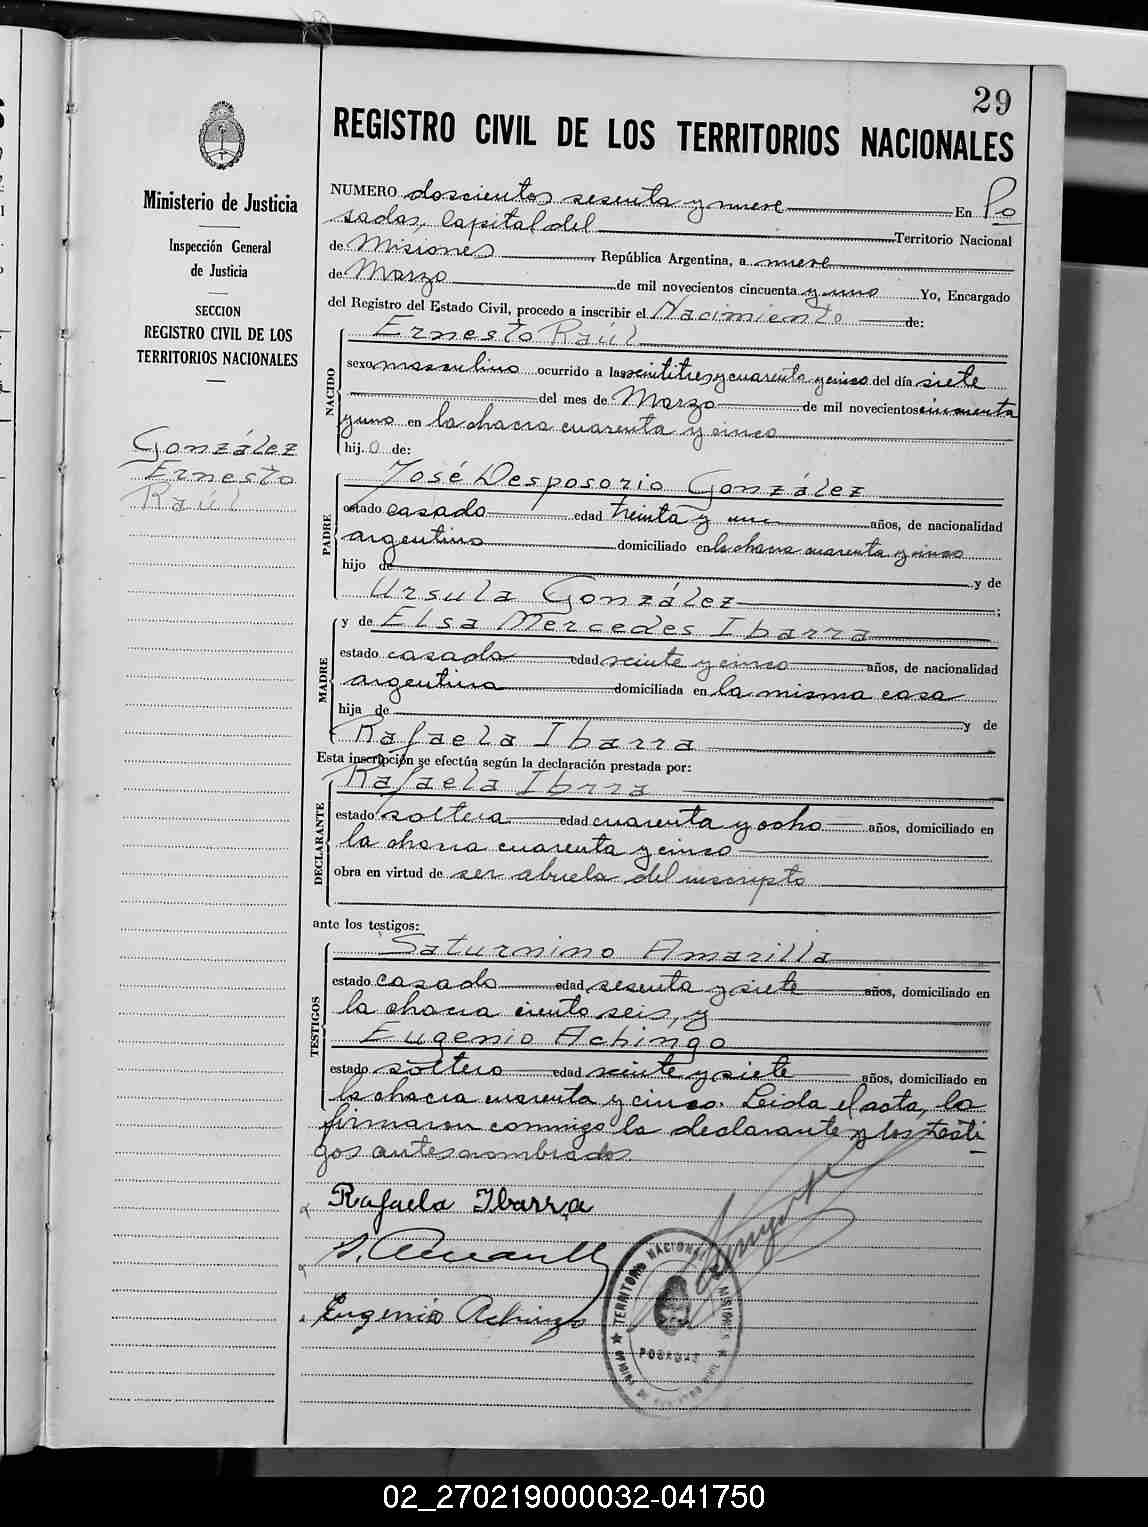 29
REGISTRO CIVIL DE LOS TERRITORIOS NACIONALES
Ministerio de Justicia
Inspección General
de Justicia
SECCION
REGISTRO CIVIL DE LOS
TERRITORIOS NACIONALES
González
Ernesto
Raúl
NUMERO doscientos sesenta y nueve En Po
sadas, Capital del Territorio Nacional
de Misiones, República Argentina, a nueve
de Marzo de mil novecientos cincuenta y uno Yo, Encargado
del Registro del Estado Civil, procedo a inscribir el Nacimiento de:
NACIDO
Ernesto Raúl
sexo masculino ocurrido a las veintitres y cuarenta y cinco del día siete
del mes de Marzo de mil novecientos cincuenta
y uno en la chacra cuarenta y cinco
hij.o de:
PADRE
José Desposorio González
estado casado edad treinta y un años, de nacionalidad
argentino domiciliado en la chacra cuarenta y cinco
hijo de y de
Ursula González ;
MADRE
y de Elsa Mercedes Ibarra
estado casada edad veinte y cinco años, de nacionalidad
argentina domiciliada en la misma casa
hija de y de
Rafaela Ibarra
Esta inscripción se efectúa según la declaración prestada por:
DECLARANTE
Rafaela Ibrra
estado soltera edad cuarenta y ocho años, domiciliado en
la chacra cuarenta y cinco
obra en virtud de ser abuela del inscripto
ante los testigos:
TESTIGOS
Saturnino Amarilla
estado casado edad sesenta y siete años, domiciliado en
la chacra ciento seis, y
Eugenio Achingo
estado soltero edad veinte y siete años, domiciliado en
la chacra cuarenta y cinco. Leida el acta, la
firmaron conmigo la declarante y los testi
gos antes nombrados.
Rafaela Ibarra
Eugenio Achingo
TERRITORIO NACIONAL DE MISIONES
POSADAS
02_270219000032-041750